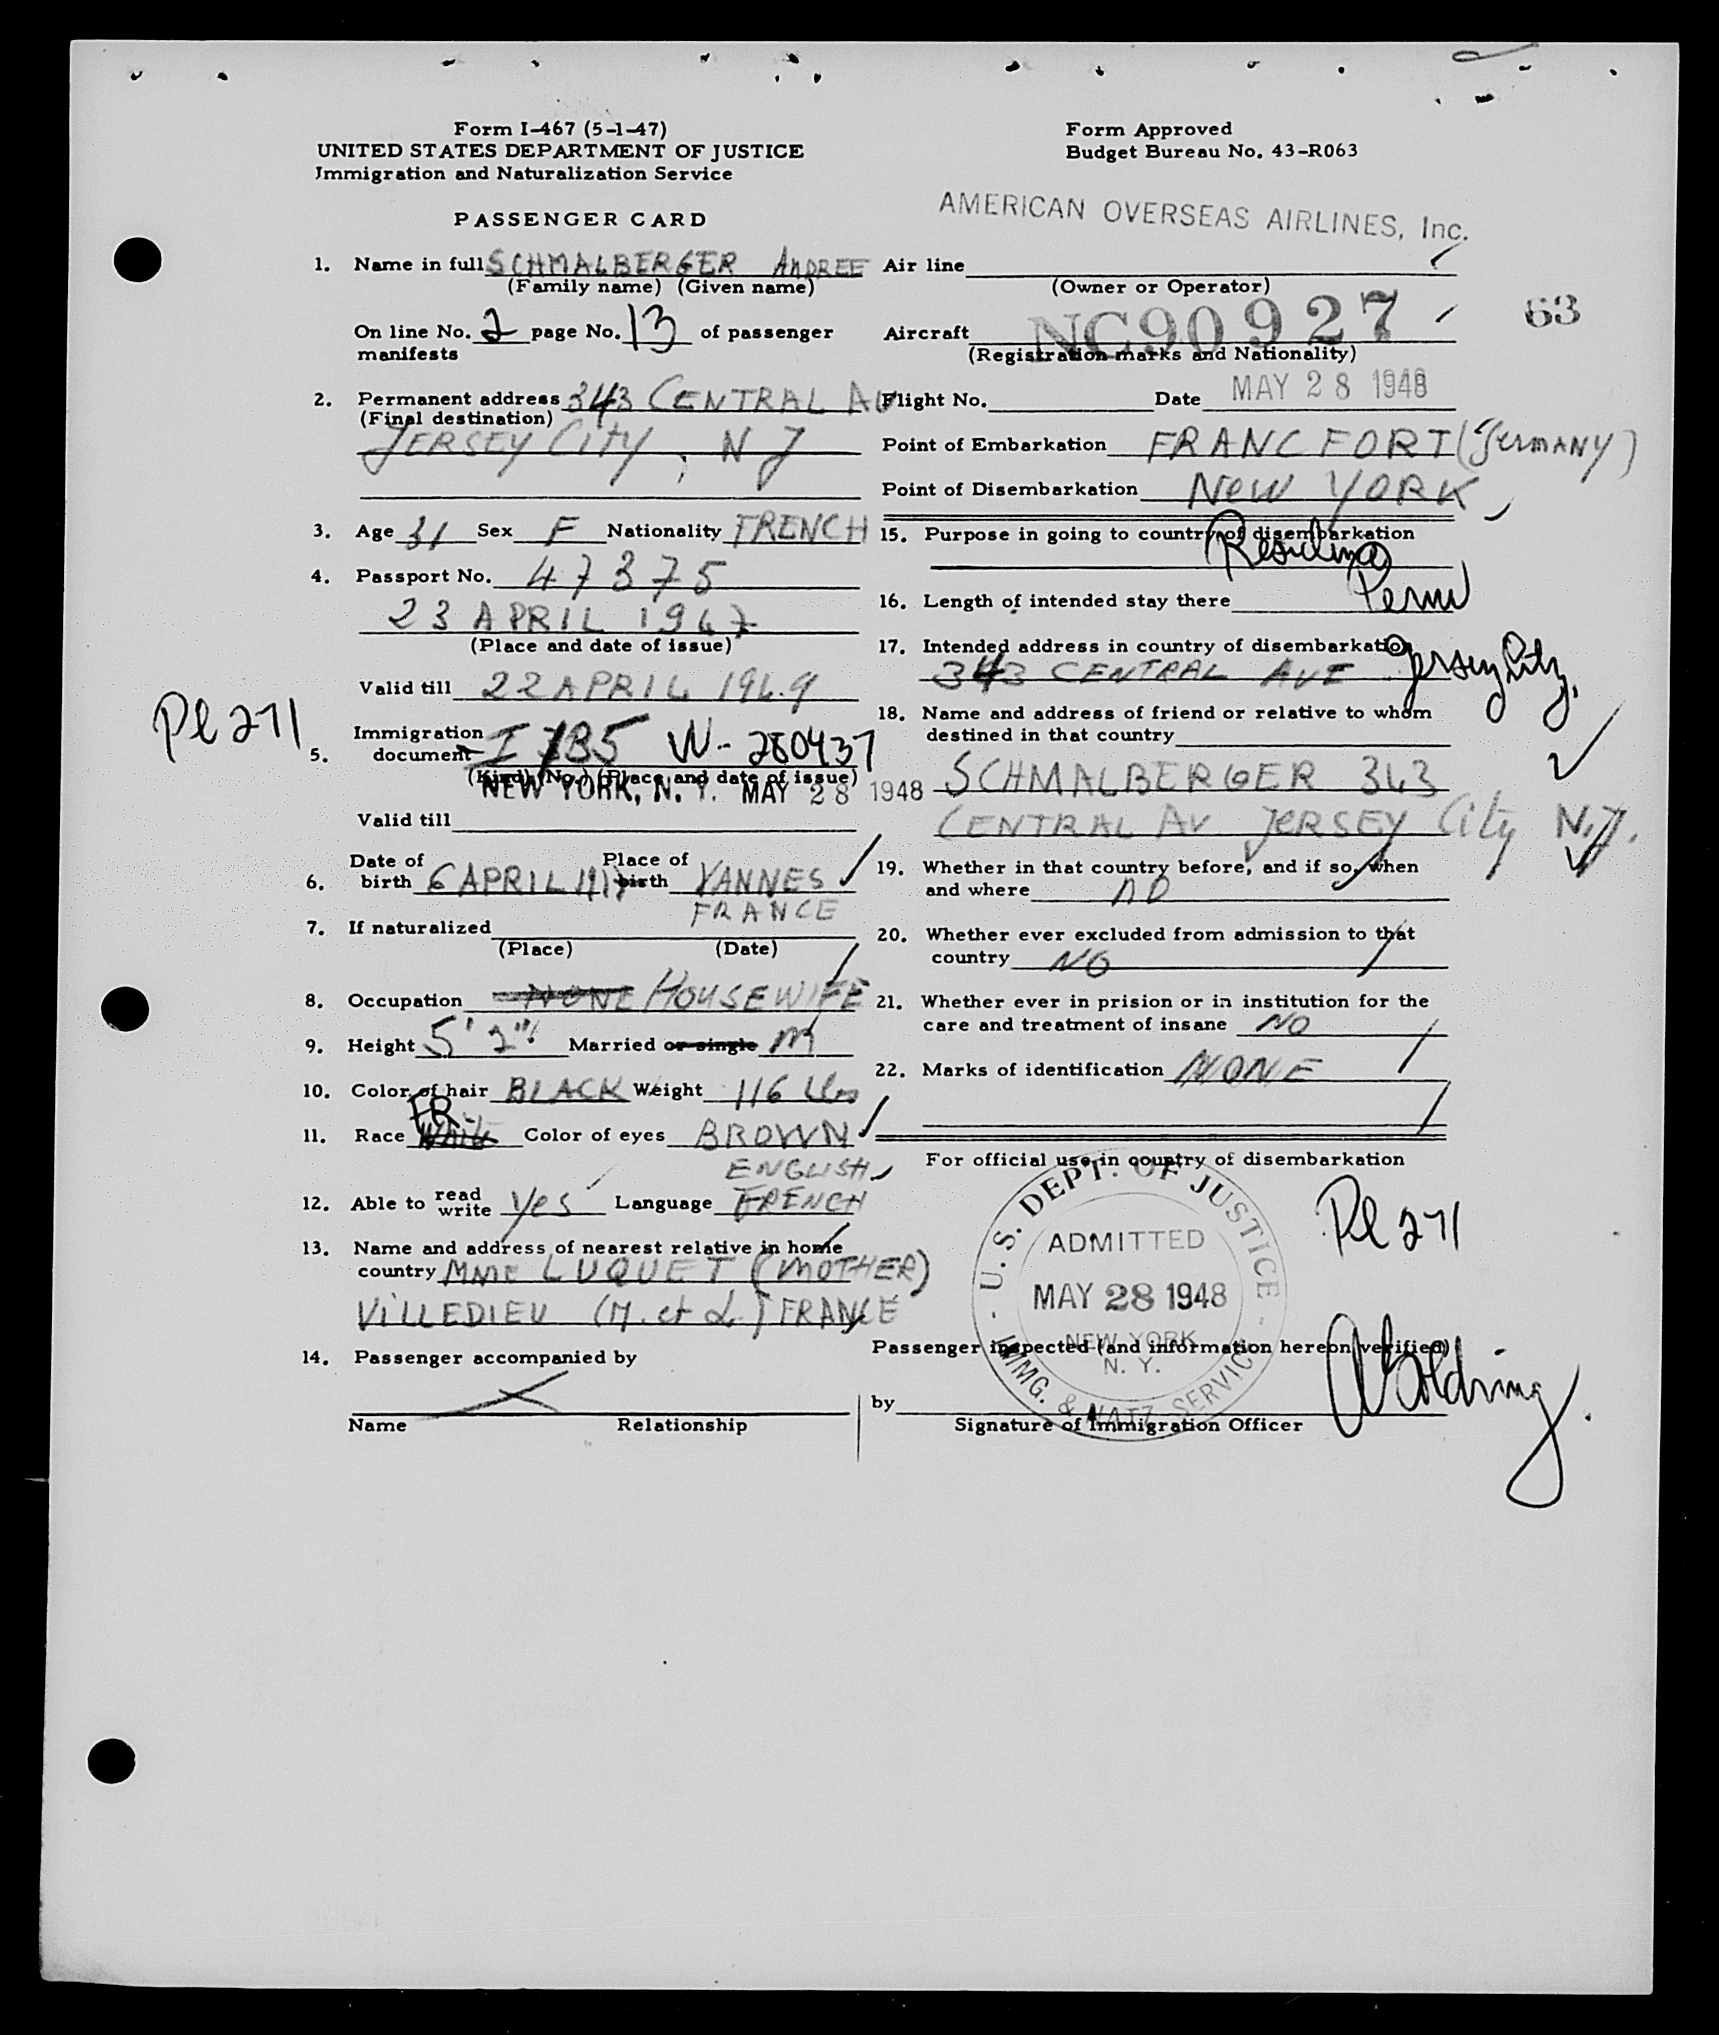 Form I-467 (5-1-47)
UNITED STATES DEPARTMENT OF JUSTICE
Immigration and Naturalization Service
PASSENGER CARD
Form Approved
Budget Bureau No. 43-R063
AMERICAN OVERSEAS AIRLINES, Inc.
1. Name in full SCHMALBERGER ANDREE
(Family name) (Given name)
On line No. 2 page No. 13 of passenger
manifests
2. Permanent address 343 CENTRAL AV
(Final destination)
JERSEY CITY, N J
3. Age 31 Sex F Nationality FRENCH
4. Passport No. 47375
23 APRIL 1947
(Place and date of issue)
Valid till 22 APRIL 1949
Pl 271
5. Immigration
document I 135 W-280437
(Kind) (No.) (Place and date of issue)
NEW YORK, N. Y. MAY 28 1948
Valid till
6. Date of birth 6 APRIL 1917 Place of birth VANNES
FRANCE
7. If naturalized
(Place) (Date)
8. Occupation NONE HOUSEWIFE
9. Height 5' 2" Married or single M
10. Color of hair BLACK Weight 116 Lbs
FR.
11. Race White Color of eyes BROWN
ENGLISH
12. Able to read write Yes Language FRENCH
13. Name and address of nearest relative in home
country MME LUQUET (MOTHER)
VILLEDIEU (M. et L.) FRANCE
14. Passenger accompanied by
Name Relationship
Air line
(Owner or Operator)
Aircraft NC90927
63
(Registration marks and Nationality)
Flight No. Date MAY 28 1948
Point of Embarkation FRANCFORT (GERMANY)
Point of Disembarkation NEW YORK
15. Purpose in going to country of disembarkation
Residing
16. Length of intended stay there Perm
17. Intended address in country of disembarkation
343 CENTRAL AVE Jersey City,
18. Name and address of friend or relative to whom
destined in that country
SCHMALBERGER 343
CENTRAL AV JERSEY City N.J.
19. Whether in that country before, and if so, when
and where NO
20. Whether ever excluded from admission to that
country NO
21. Whether ever in prision or in institution for the
care and treatment of insane NO
22. Marks of identification NONE
For official use in country of disembarkation
U. S. DEPT. OF JUSTICE
ADMITTED
MAY 28 1948
NEW YORK
N. Y.
IMMG. & NATZ. SERVICE
Pl 271
Passenger inspected (and information hereon verified)
by
Signature of Immigration Officer